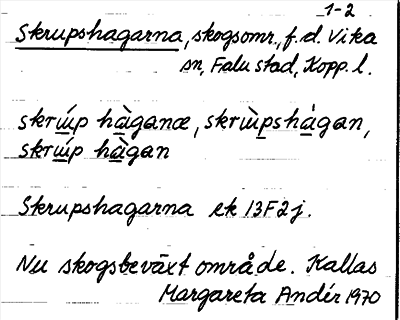 1-2
Skrupshagarna, skogsomr., f.d. Vika
sn, Falu stad, Kopp. l.
skrẁp hàganæ, skrùpshàgan,
skrẁp hàgan
Skrupshagarna ek 13F2j.
Nu skogsbeväxt område. Kallas
Margareta Andér 1970